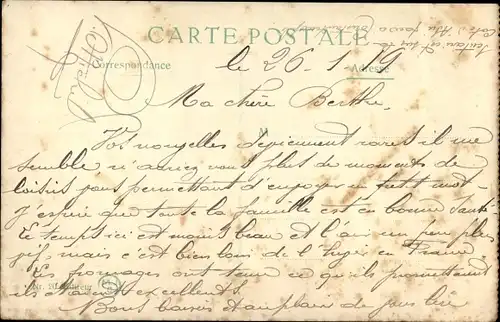 CARTE POSTALE
Correspondance
Adresse
le 26-1-19
Ma chère Berthe,
Vos nouvelles deviennent rares il me
semble n'auriez vous plus de moments de
loisirs vous permettant d'envoyer un petit mot-
j'espère que toute la famille est en bonne santé
Le temps ici est moins beau et l'air un peu plus
vif, mais c'est bien loin de l'hiver en France
Les fromages ont tenu ce qu'ils promettaient
ils étaient excellents.
Bons baisers et au plaisir de vous lire